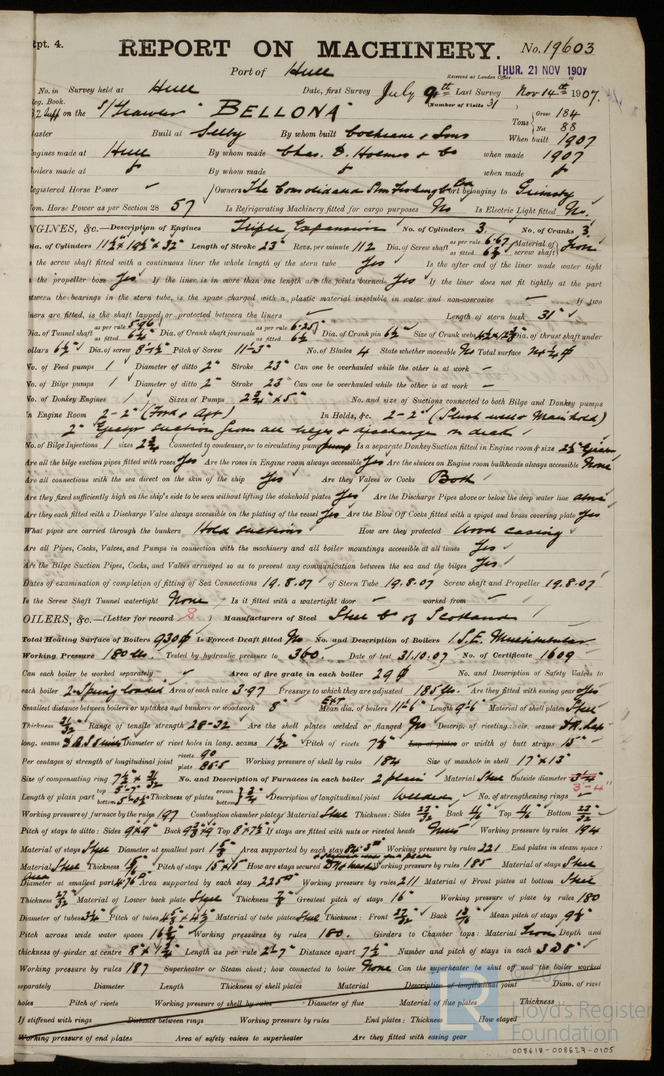 Rpt. 4.
REPORT ON MACHINERY. No. 19603
Port of Hull
Received at London Office THUR. 21 NOV 1907
No. in Survey held at Hull Date, first Survey July 9th Last Survey Nov 14th 1907.
Reg. Book. (Number of Visits 31
on the S/Trawler "BELLONA" Tons { Gross 184 Net 88
Master Built at Selby By whom built Cochrane & Sons When built 1907
Engines made at Hull By whom made Chas. D. Holmes & Co when made 1907
Boilers made at By whom made when made
Registered Horse Power Owners The Consolidated Stm Fishing Co Port belonging to Grimsby
Nom. Horse Power as per Section 28 57 Is Refrigerating Machinery fitted for cargo purposes No Is Electric Light fitted No.
ENGINES, &c.—Description of Engines Triple Expansion No. of Cylinders 3. No. of Cranks 3.
Dia. of Cylinders Length of Stroke 23" Revs. per minute 112 Dia. of Screw shaft as per rule 6.67 as fitted 6¾" Material of screw shaft Iron
Is the screw shaft fitted with a continuous liner the whole length of the stern tube Yes Is the after end of the liner made water tight
in the propeller boss Yes If the liner is in more than one length are the joints burned Yes If the liner does not fit tightly at the part
between the bearings in the stern tube, is the space charged with a plastic material insoluble in water and non-corrosive — If two
liners are fitted, is the shaft lapped or protected between the liners — Length of stern bush 31"
Dia. of Tunnel shaft as per rule 5.96 as fitted Dia. of Crank shaft journals as per rule 6.25 as fitted 6½ Dia. of Crank pin 6½" Size of Crank webs Dia. of thrust shaft under
collars 6½" Dia. of screw 8-1½" Pitch of Screw 11-3" No. of Blades 4 State whether moveable No Total surface
No. of Feed pumps 1 Diameter of ditto 2" Stroke 23" Can one be overhauled while the other is at work —
No. of Bilge pumps 1 Diameter of ditto 2" Stroke 23" Can one be overhauled while the other is at work —
No. of Donkey Engines 1 Sizes of Pumps No. and size of Suctions connected to both Bilge and Donkey pumps
In Engine Room 2-2" (Ford & Aft) In Holds, &c. 2-2" (Slush well & Main hold)
2" Ejector suction from all bilges & discharge on deck
No. of Bilge Injections 1 sizes 2¾ Connected to condenser, or to circulating pump pump Is a separate Donkey Suction fitted in Engine room & size
Are all the bilge suction pipes fitted with roses Yes Are the roses in Engine room always accessible Yes Are the sluices on Engine room bulkheads always accessible None
Are all connections with the sea direct on the skin of the ship Yes Are they Valves or Cocks Both
Are they fixed sufficiently high on the ship's side to be seen without lifting the stokehold plates Yes Are the Discharge Pipes above or below the deep water line above
Are they each fitted with a Discharge Valve always accessible on the plating of the vessel Yes Are the Blow Off Cocks fitted with a spigot and brass covering plate Yes
What pipes are carried through the bunkers Hold suctions How are they protected Wood casing
Are all Pipes, Cocks, Valves, and Pumps in connection with the machinery and all boiler mountings accessible at all times Yes
Are the Bilge Suction Pipes, Cocks, and Valves arranged so as to prevent any communication between the sea and the bilges Yes
Dates of examination of completion of fitting of Sea Connections 19.8.07 of Stern Tube 19.8.07 Screw shaft and Propeller 19.8.07
Is the Screw Shaft Tunnel watertight None Is it fitted with a watertight door — worked from —
BOILERS, &c.—(Letter for record S) Manufacturers of Steel Steel Co of Scotland
Total Heating Surface of Boilers 930 Is Forced Draft fitted No No. and Description of Boilers 1. S.E. Multitubular
Working Pressure 180 lbs. Tested by hydraulic pressure to 360 Date of test 31.10.07 No. of Certificate 1609
Can each boiler be worked separately Area of fire grate in each boiler 29 No. and Description of Safety Valves to
each boiler 2-Spring loaded Area of each valve 3.97 Pressure to which they are adjusted 185 lbs. Are they fitted with easing gear Yes
Smallest distance between boilers or uptakes and bunkers or woodwork 8" Mean dia. of boilers 11-6" Length 9-6" Material of shell plates Steel
Thickness 31/32 Range of tensile strength 28-32 Are the shell plates welded or flanged No Descrip. of riveting: cir. seams D.R. Lap
long. seams Diameter of rivet holes in long. seams 1 3/32 Pitch of rivets Lap of plates or width of butt straps 15"
Per centages of strength of longitudinal joint rivets 90 plate 85.5 Working pressure of shell by rules 184 Size of manhole in shell 17" x 13"
Size of compensating ring No. and Description of Furnaces in each boiler 2 plain Material Steel Outside diameter 3-4"
Length of plain part top bottom Thickness of plates crown bottom ¾" Description of longitudinal joint Welded No. of strengthening rings
Working pressure of furnace by the rules 197 Combustion chamber plates: Material Steel Thickness: Sides Back Top Bottom
Pitch of stays to ditto: Sides 9x9" Back Top If stays are fitted with nuts or riveted heads Nuts Working pressure by rules 194
Material of stays Steel Diameter at smallest part Area supported by each stay Working pressure by rules 221 End plates in steam space:
Material Steel Thickness Pitch of stays 15 x 15" How are stays secured Working pressure by rules 185 Material of stays Steel
Diameter at smallest part 4.76 Area supported by each stay 225 Working pressure by rules 211 Material of Front plates at bottom Steel
Thickness Material of Lower back plate Steel Thickness Greatest pitch of stays 16" Working pressure of plate by rules 180
Diameter of tubes Pitch of tubes Material of tube plates Steel Thickness: Front Back Mean pitch of stays
Pitch across wide water spaces Working pressures by rules 180. Girders to Chamber tops: Material Iron Depth and
thickness of girder at centre Length as per rule 2-7" Distance apart 7½ Number and pitch of stays in each 3 @ 8"
Working pressure by rules 187 Superheater or Steam chest; how connected to boiler None Can the superheater be shut off and the boiler worked
separately Diameter Length Thickness of shell plates Material Description of longitudinal joint Diam. of rivet
holes Pitch of rivets Working pressure of shell by rules Diameter of flue Material of flue plates Thickness
If stiffened with rings Distance between rings Working pressure by rules End plates: Thickness How stayed
Working pressure of end plates Area of safety valves to superheater Are they fitted with easing gear
LR
Lloyd's Register
Foundation
008618-008627-0105